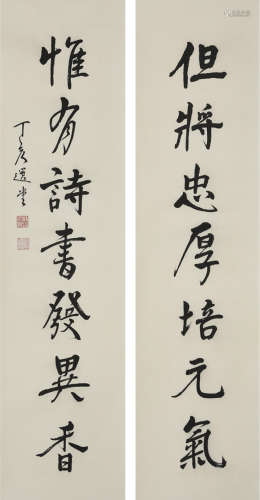 但將忠厚培元氣
惟有詩書發異香
丁亥